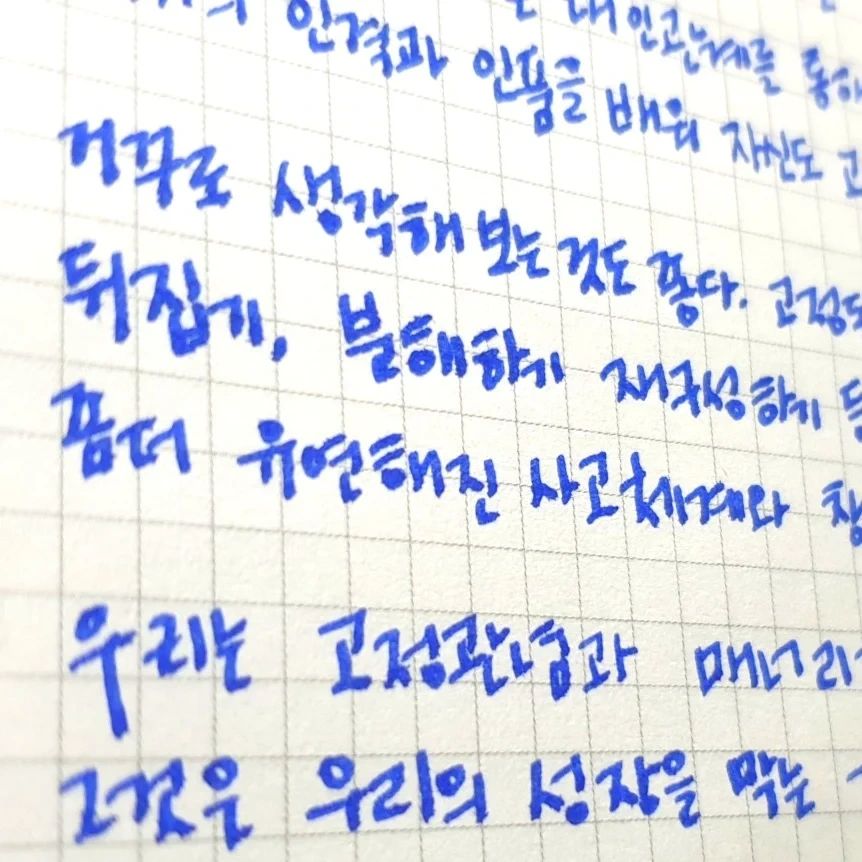 인격과 인품을 배워 자신도
대인관계를 통하
거꾸로 생각해 보는 것도 좋다. 고정
뒤집기, 분해하기 재구성하기 등
좀더 유연해진 사고체계와 창
우리는 고정관념과 매너리
그것은 우리의 성장을 막는